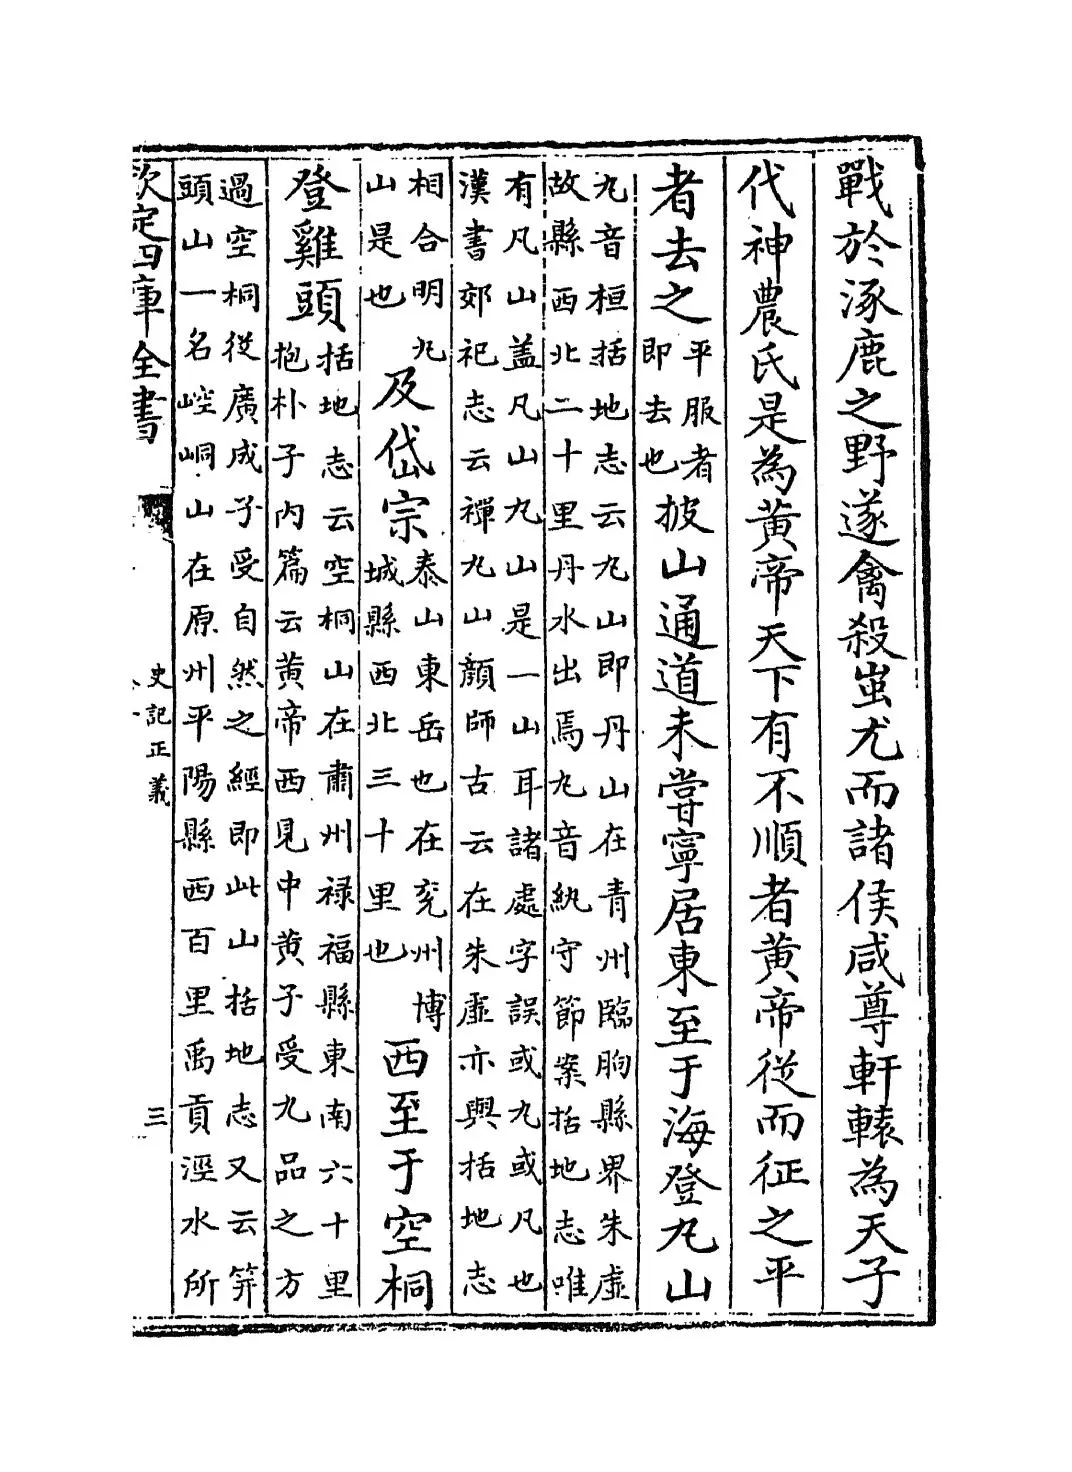 戰於涿鹿之野遂禽殺蚩尤而諸侯咸尊軒轅為天子
代神農氏是為黄帝天下有不順者黄帝從而征之平
者去之平服者即去也披山通道未嘗寧居東至于海登丸山
丸音桓括地志云丸山即丹山在青州臨朐縣界朱虛
故縣西北二十里丹水出焉丸音紈守節案括地志唯
有凡山蓋凡山丸山是一山耳諸處字誤或丸或凡也
漢書郊祀志云禪丸山顔師古云在朱虛亦與括地志
相合明丸山是也及岱宗泰山東岳也在兖州博城縣西北三十里也西至于空桐
登雞頭括地志云空桐山在肅州禄福縣東南六十里抱朴子内篇云黄帝西見中黄子受九品之方
過空桐從廣成子受自然之經即此山括地志又云笄
頭山一名崆峒山在原州平陽縣西百里禹貢涇水所
欽定四庫全書
史記正義
三